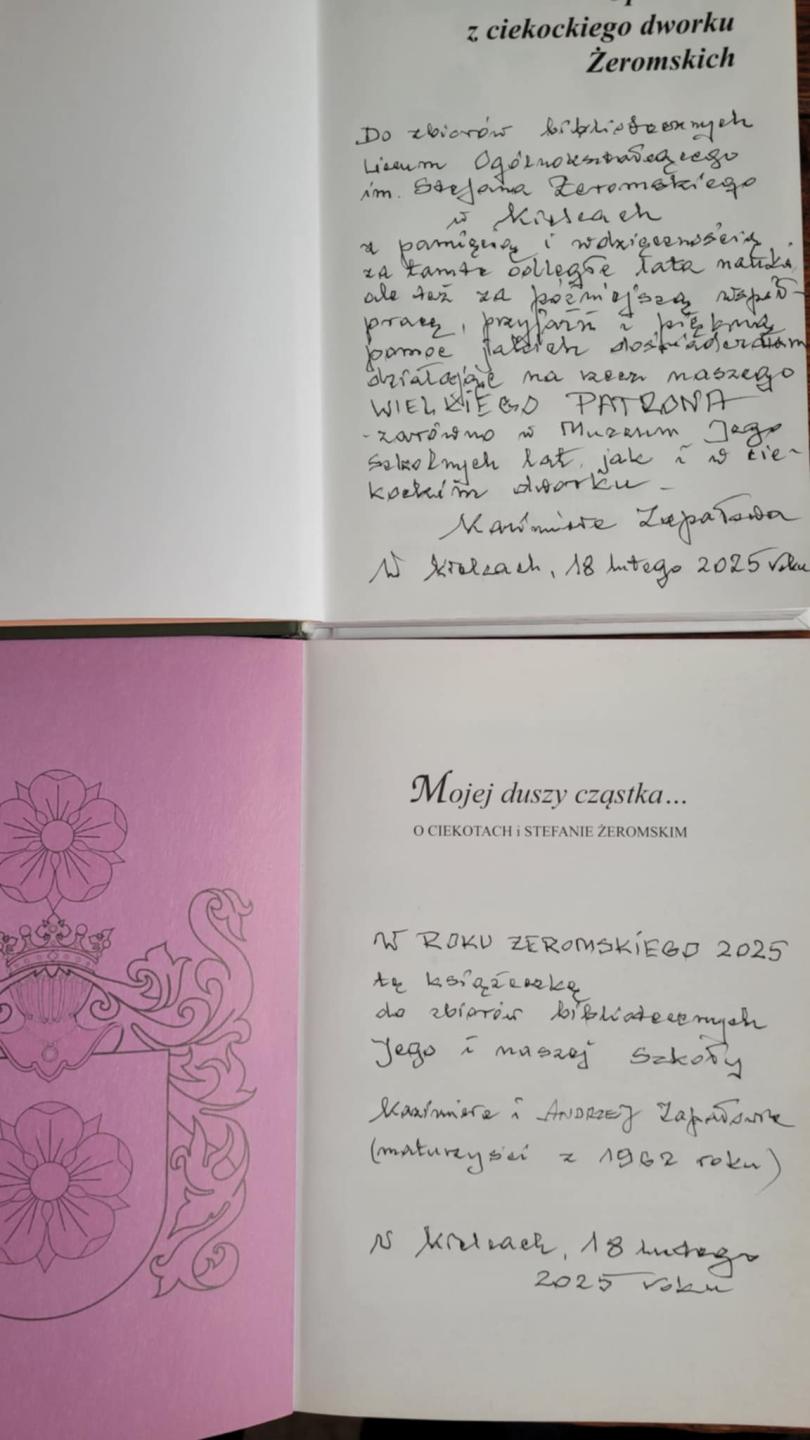 z ciekockiego dworku
Żeromskich
Do zbiorów bibliotecznych
Liceum Ogólnokształcącego
im. Stefana Żeromskiego
w Kielcach
z pamięcią i wdzięcznością
za tamte odległe lata nauki,
ale też za późniejszą współ-
pracę, przyjaźń i piękną
pomoc jakich doświadczałam
działając na rzecz naszego
WIELKIEGO PATRONA
- zarówno w Muzeum Jego
szkolnych lat, jak i w cie-
kockim dworku -
Kazimiera Zapałowa
W Kielcach, 18 lutego 2025 roku
Mojej duszy cząstka...
O CIEKOTACH i STEFANIE ŻEROMSKIM
W ROKU ŻEROMSKIEGO 2025
tę książeczkę
do zbiorów bibliotecznych
Jego i naszej Szkoły
Kazimiera i ANDRZEJ Zapałowie
(maturzyści z 1962 roku)
W Kielcach, 18 lutego
2025 roku